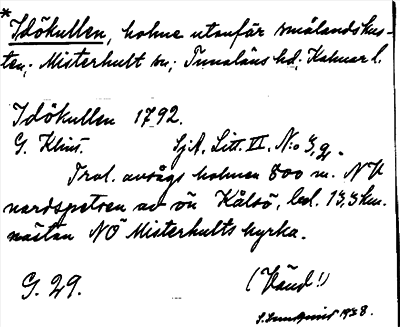 * Idökullen, holme utanför smålandskus-
ten; Misterhult sn; Tunaläns hd; Kalmar l.
Idökullen 1792.
G. Klint. SjA. Litt. VI. N:o 3,g.
Trol. avsågs holmen 800 m. NV
nordspetsen av ön Kålsö, bel. 13,3 km.
nästan NÖ Misterhults kyrka.
G. 29. (Vänd!)
1938.